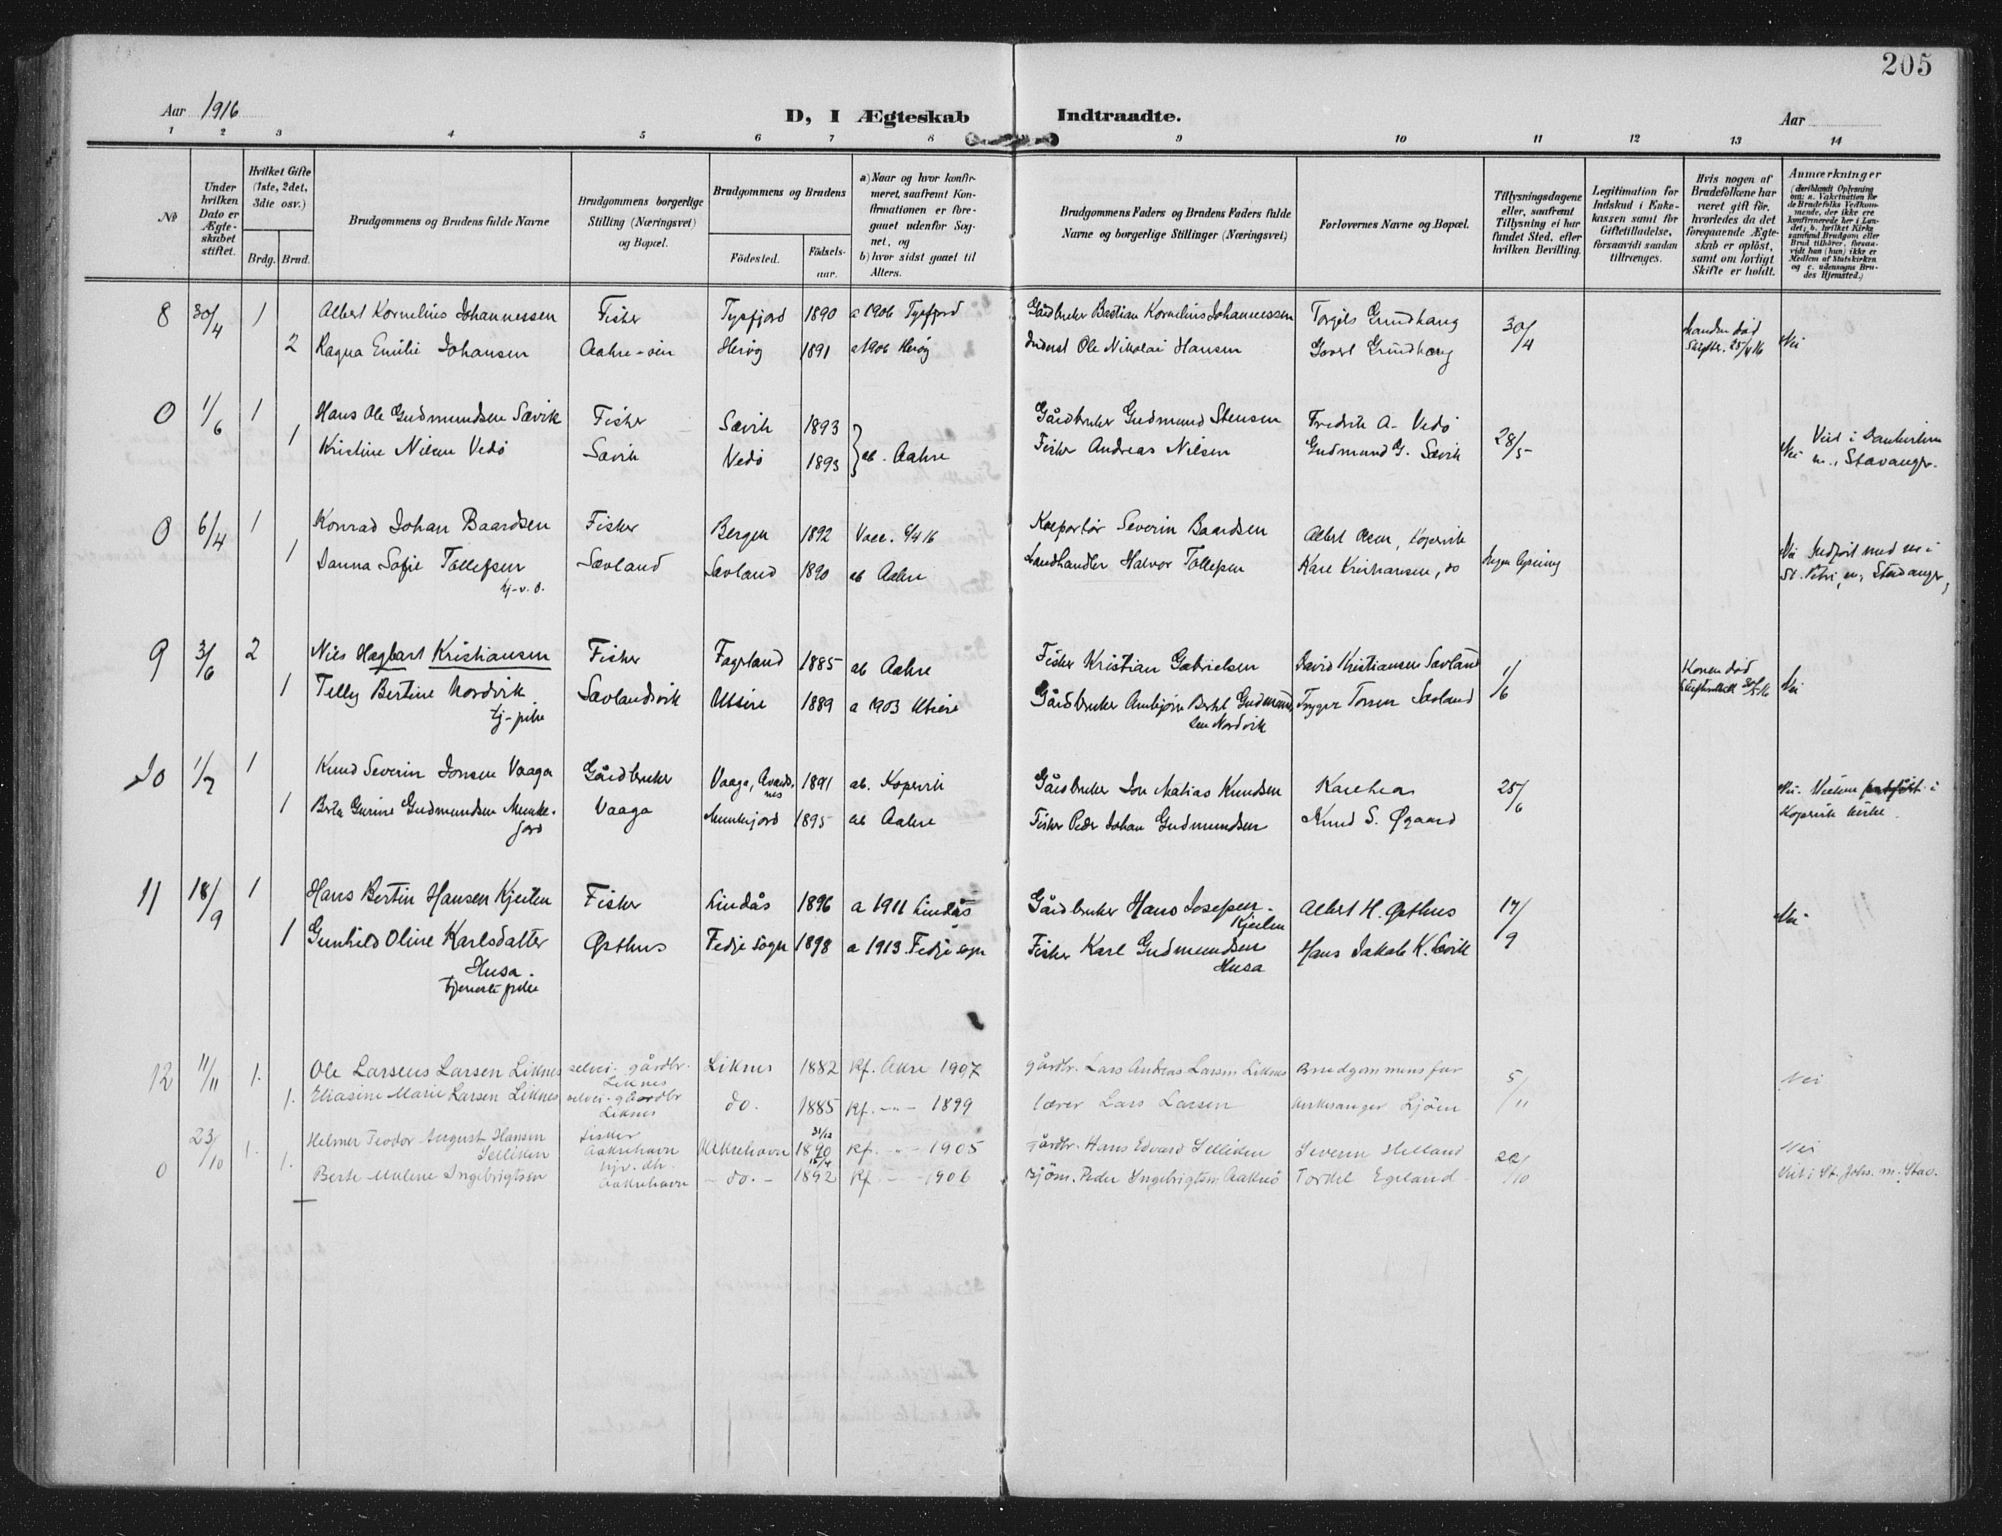 205
Aar 1916 D, I Ægteskab Indtraadte. Aar
1 2 3 4 5 6 7 8 9 10 11 12 13 14
No
Under hvilken Dato er Ægteskabet stiftet.
Hvilket Gifte (1ste, 2det, 3die osv.)
Brdg. Brud.
Brudgommens og Brudens fulde Navne
Brudgommens borgerlige Stilling (Næringsvei) og Bopæl.
Brudgommens og Brudens
Födested. Födselsaar.
a) Naar og hvor konfirmeret, saafremt Konfirmationen er foregaaet udenfor Sognet, og
b) hvor sidst gaaet til Alters.
Brudgommens Faders og Brudens Faders fulde Navne og borgerlige Stillinger (Næringsvei)
Forlovernes Navne og Bopæl.
Tillysningsdagene eller, saafremt Tillysning ei har fundet Sted, efter hvilken Bevilling.
Legitimation for Indskud i Enkekassen samt for Giftetilladelse, forsaavidt saadan tiltrænges.
Hvis nogen af Brudefolkene har været gift för, hvorledes da det foregaaende Ægteskab er oplöst, samt om lovligt Skifte er holdt.
Anmærkninger
(deriblandt Oplysning om: a. Vakcination for de Brudefolks Vedkommende, der ikke ere konfirmerede her i Landet; b. hvilket Kirkesamfund Brudgom eller Brud tilhörer, forsaavidt han (hun) ikke er Medlem af Statskirken og c. udensogns Brudes Hjemsted.)
8 30/4 1 Albert Kornelius Johannessen Fisker Tysfjord 1890 a 1906 Tysfjord Gårdbruker Bastian Kornelius Johannessen Torgils Grindhaug 30/4 Manden död
2 Ragna Emilie Johansen Aakre-öen Heröy 1891 a 1906 Heröy Inderst Ole Nikolai Hansen Govert Grindhaug Skifter. 25/4 16 Nei
0 1/6 1 Hans Ole Gudmundsen Sævik Fisker Sævik 1893 Gårdbruker Gudmund Stensen Fredrik A. Vedö 28/5 Viet i Domkirken
1 Kristine Nilsen Vedö Sævik Vedö 1893 ab. Aakre Fisker Andreas Nilsen Gudmund G. Sævik Nei m., Stavanger.
0 6/4 1 Konrad Johan Baardsen Fisker Bergen 1892 Vacc. 6/4 16 Kolportör Severin Baardsen Albert Aasen, Kopervik Nei Indført med no i
1 Danna Sofie Tollefsen Sævland Sævland 1890 ab Aakre Landhandler Halvor Tollefsen Kare Kristiansen, do Ingen lysning St. Petri, m., Stavanger,
tj-v. o.
9 3/6 2 Nils Hagbart Kristiansen Fisker Fagerland 1885 ab Aakre Fisker Kristian Gabrielsen David Kristiansen Sævland 1/6 Konen död
1 Telly Bertine Nordvik Sævlandsvik Utsire 1889 a 1903 Utsire Gårdbruker Anbjørn Bertel Gudmundsen Nordvik Trygve Torsen Sævland Skifteattest 30/5 16 Nei
tj-pike
10 1/7 1 Knud Severin Jonsen Vaaga Gårdbruker Vaaga, Avaldsnes 1891 ab. Kopervik Gårdbruker Jon Matias Knudsen Kare hea 25/6 Nei. Vielsen i
1 Berta Gurine Gudmundsen Munkejord Vaaga Munkejord 1895 ab Aakre Fisker Peder Johan Gudmundsen Knud S. Øgaard Kopervik kirke.
11 18/9 1 Hans Bertin Hansen Kjeilen Fisker Lindås 1896 a 1911 Lindås Gårdbruker Hans Josefsen Kjeilen Albert H. Østhus 17/9 Nei
1 Gunhild Oline Karlsdatter Husa. Østhus Fedje Sogn 1898 a 1913 Fedje sogn Fisker Karl Gudmundsen Husa Hans Jakob K. Sævik
tjeneste pike
12 11/11 1. Ole Larseus Larsen Liknes selvei. gårdbr. Liknes Liknes 1882 Kf. Akre 1907 gårdbr. Lars Andreas Larsen Liknes Brudgommens far 5/11 Nei
1. Eliasine Marie Larsen Liknes selvei. gaardbr Liknes do. 1885 Kf. -"- 1899 lærer Lars Larsen kirkesanger Ljöm
0 23/10 1. Helmer Teodor August Hansen Selliken Fisker Aakrehavn Aakrehavn 31/12 1890 Kf. -"- 1905 gårdbr. Hans Edvard Selliken Severin Helland 22/10 Nei
1. Berte Malene Ingebrigtsen Aakrehavn - do. - 15/4 1892 Kf - - 1906 Peder Ingebrigtsen Aakre Tordel Egeland Viet i St. Johs. m., Stav.